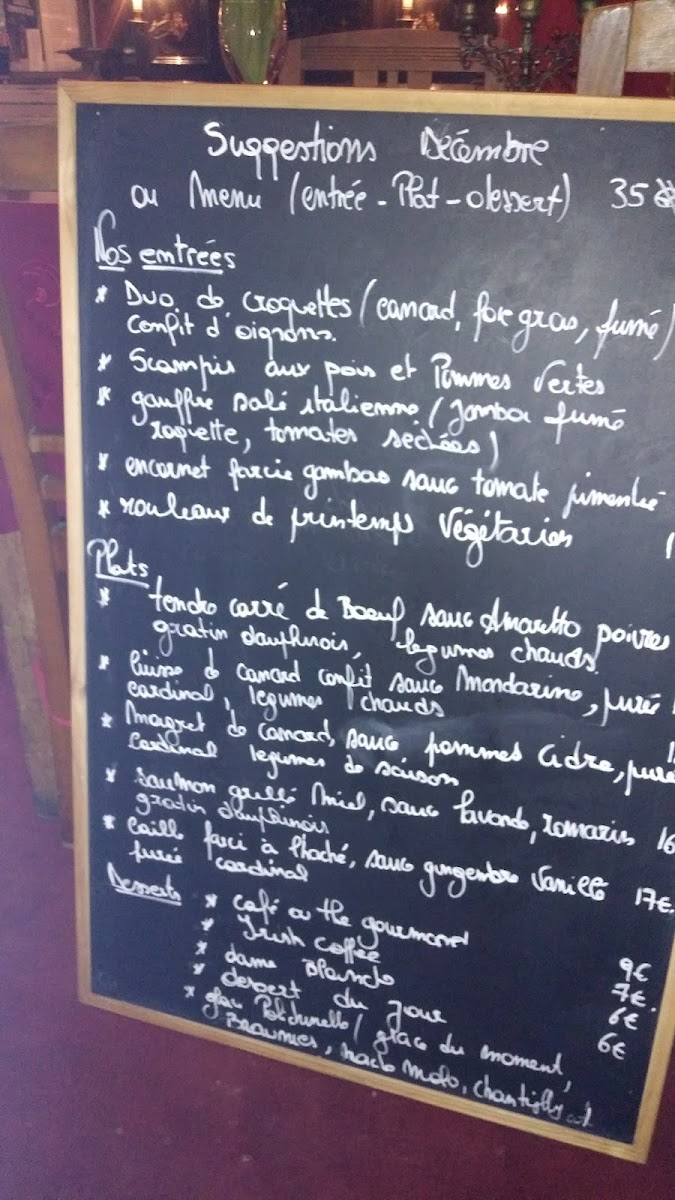 Suggestions Décembre
ou Menu (entrée - Plat - dessert) 35
Nos entrées
* Duo de croquettes (canard, foie gras, fumé)
confit d'oignons.
* Scampis aux pois et Pommes Vertes
* gauffre salé italienne (Jambon fumé
roquette, tomates séchées)
* encornet farcie gambas sauce tomate pimentée
* rouleaux de printemps Végétarien 1
Plats
* tendre carré de Boeuf sauce Amaretto poivres
gratin dauphinois, legumes chauds.
* Cuisse de Canard confit sauce Mandarine, purée 1
cardinal, legumes chauds
* Magret de Canard, sauce pommes Cidre, purée
Cardinal legumes de saison
* saumon grillé Miel, sauce lavande, romarin 16
gratin dauphinois
* Caille farci à l'haché, sauce gingembre Vanille 17€.
purée cardinal
Desserts * café ou the gourmand
* Irish Coffee 9€
* dame Blanche 7€.
* dessert du jour 6€
* glace Polichinelle / glace du moment, 6€
Brownies, Chantilly